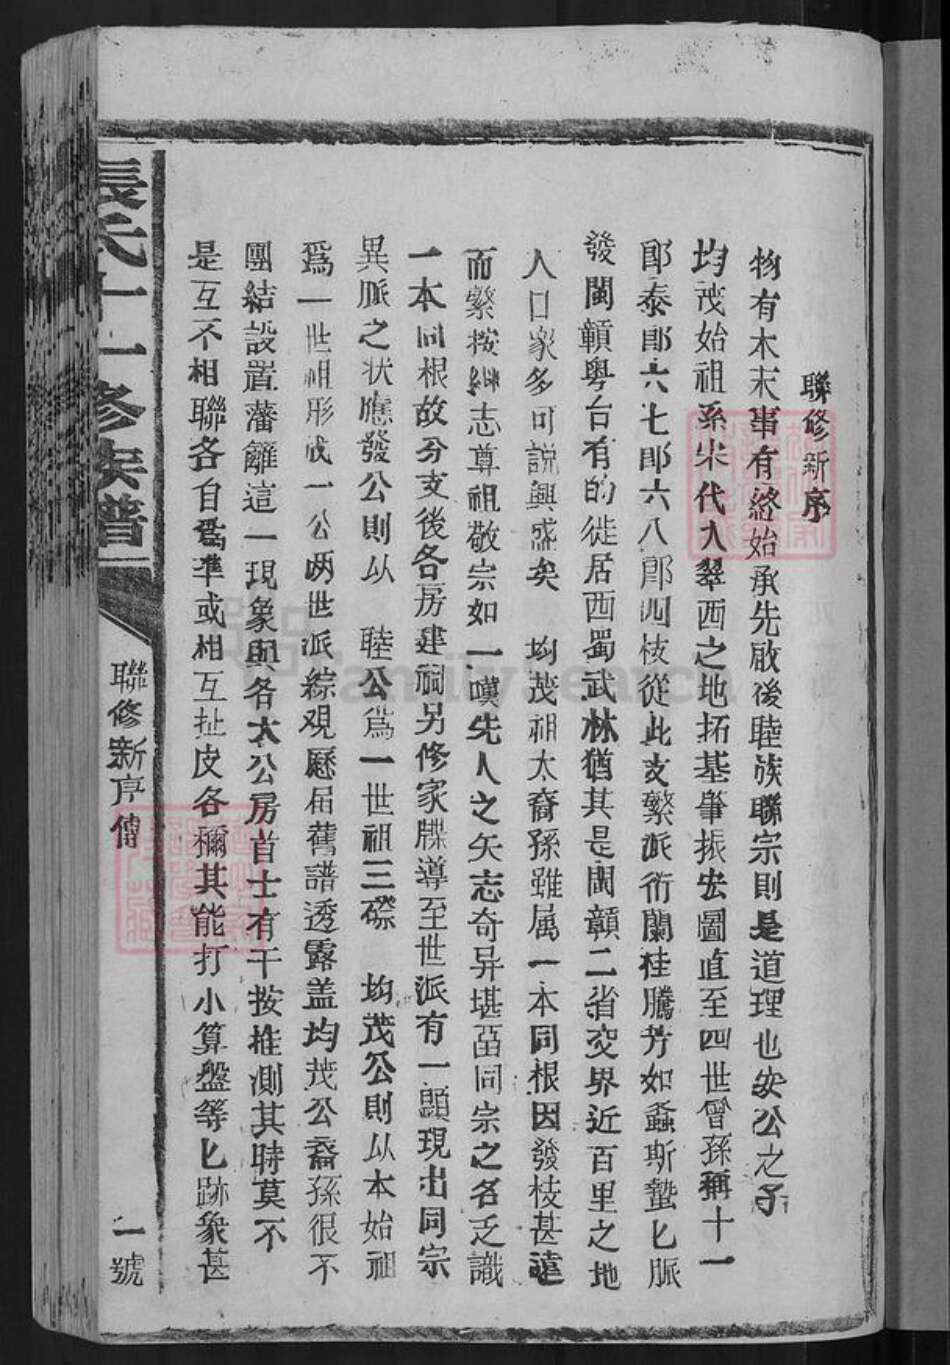 聯修新序
物有木末事有終始承先啟後睦族聯宗則是道理也安公之子
均茂始祖系宋代入翠西之地拓基肇振宏圖直至四世曾孫稱十一
郎泰郎六七郎六八郎四枝從此支繁派衍蘭桂騰芳如螽斯蟄匕脈
發閩贛粵台有的徙居西蜀武林猶其是閩贛二省交界近百里之地
人口家多可説興盛矣 均茂祖太裔孫雖属一本同根因發枝甚遠
而繁按繼志尊祖敬宗如一嘆先人之矢志奇异堪畄同宗之名乏識
一本同根故分支後各房建祠另修家牒導至世派有一顕現出同宗
異脈之状應發公則以 睦公爲一世祖三磜 均茂公則以本始祖
爲一世祖形成一公两世派綜观歷届舊譜透露盖均茂公裔孫很不
團結設置藩籬這一現象與各大公房首士有干按推測其時莫不
是互不相聯各自爲準或相互扯皮各彌其能打小算盤等匕跡象甚
張氏十一修族譜
聯修新序傳
一號
FamilySearch